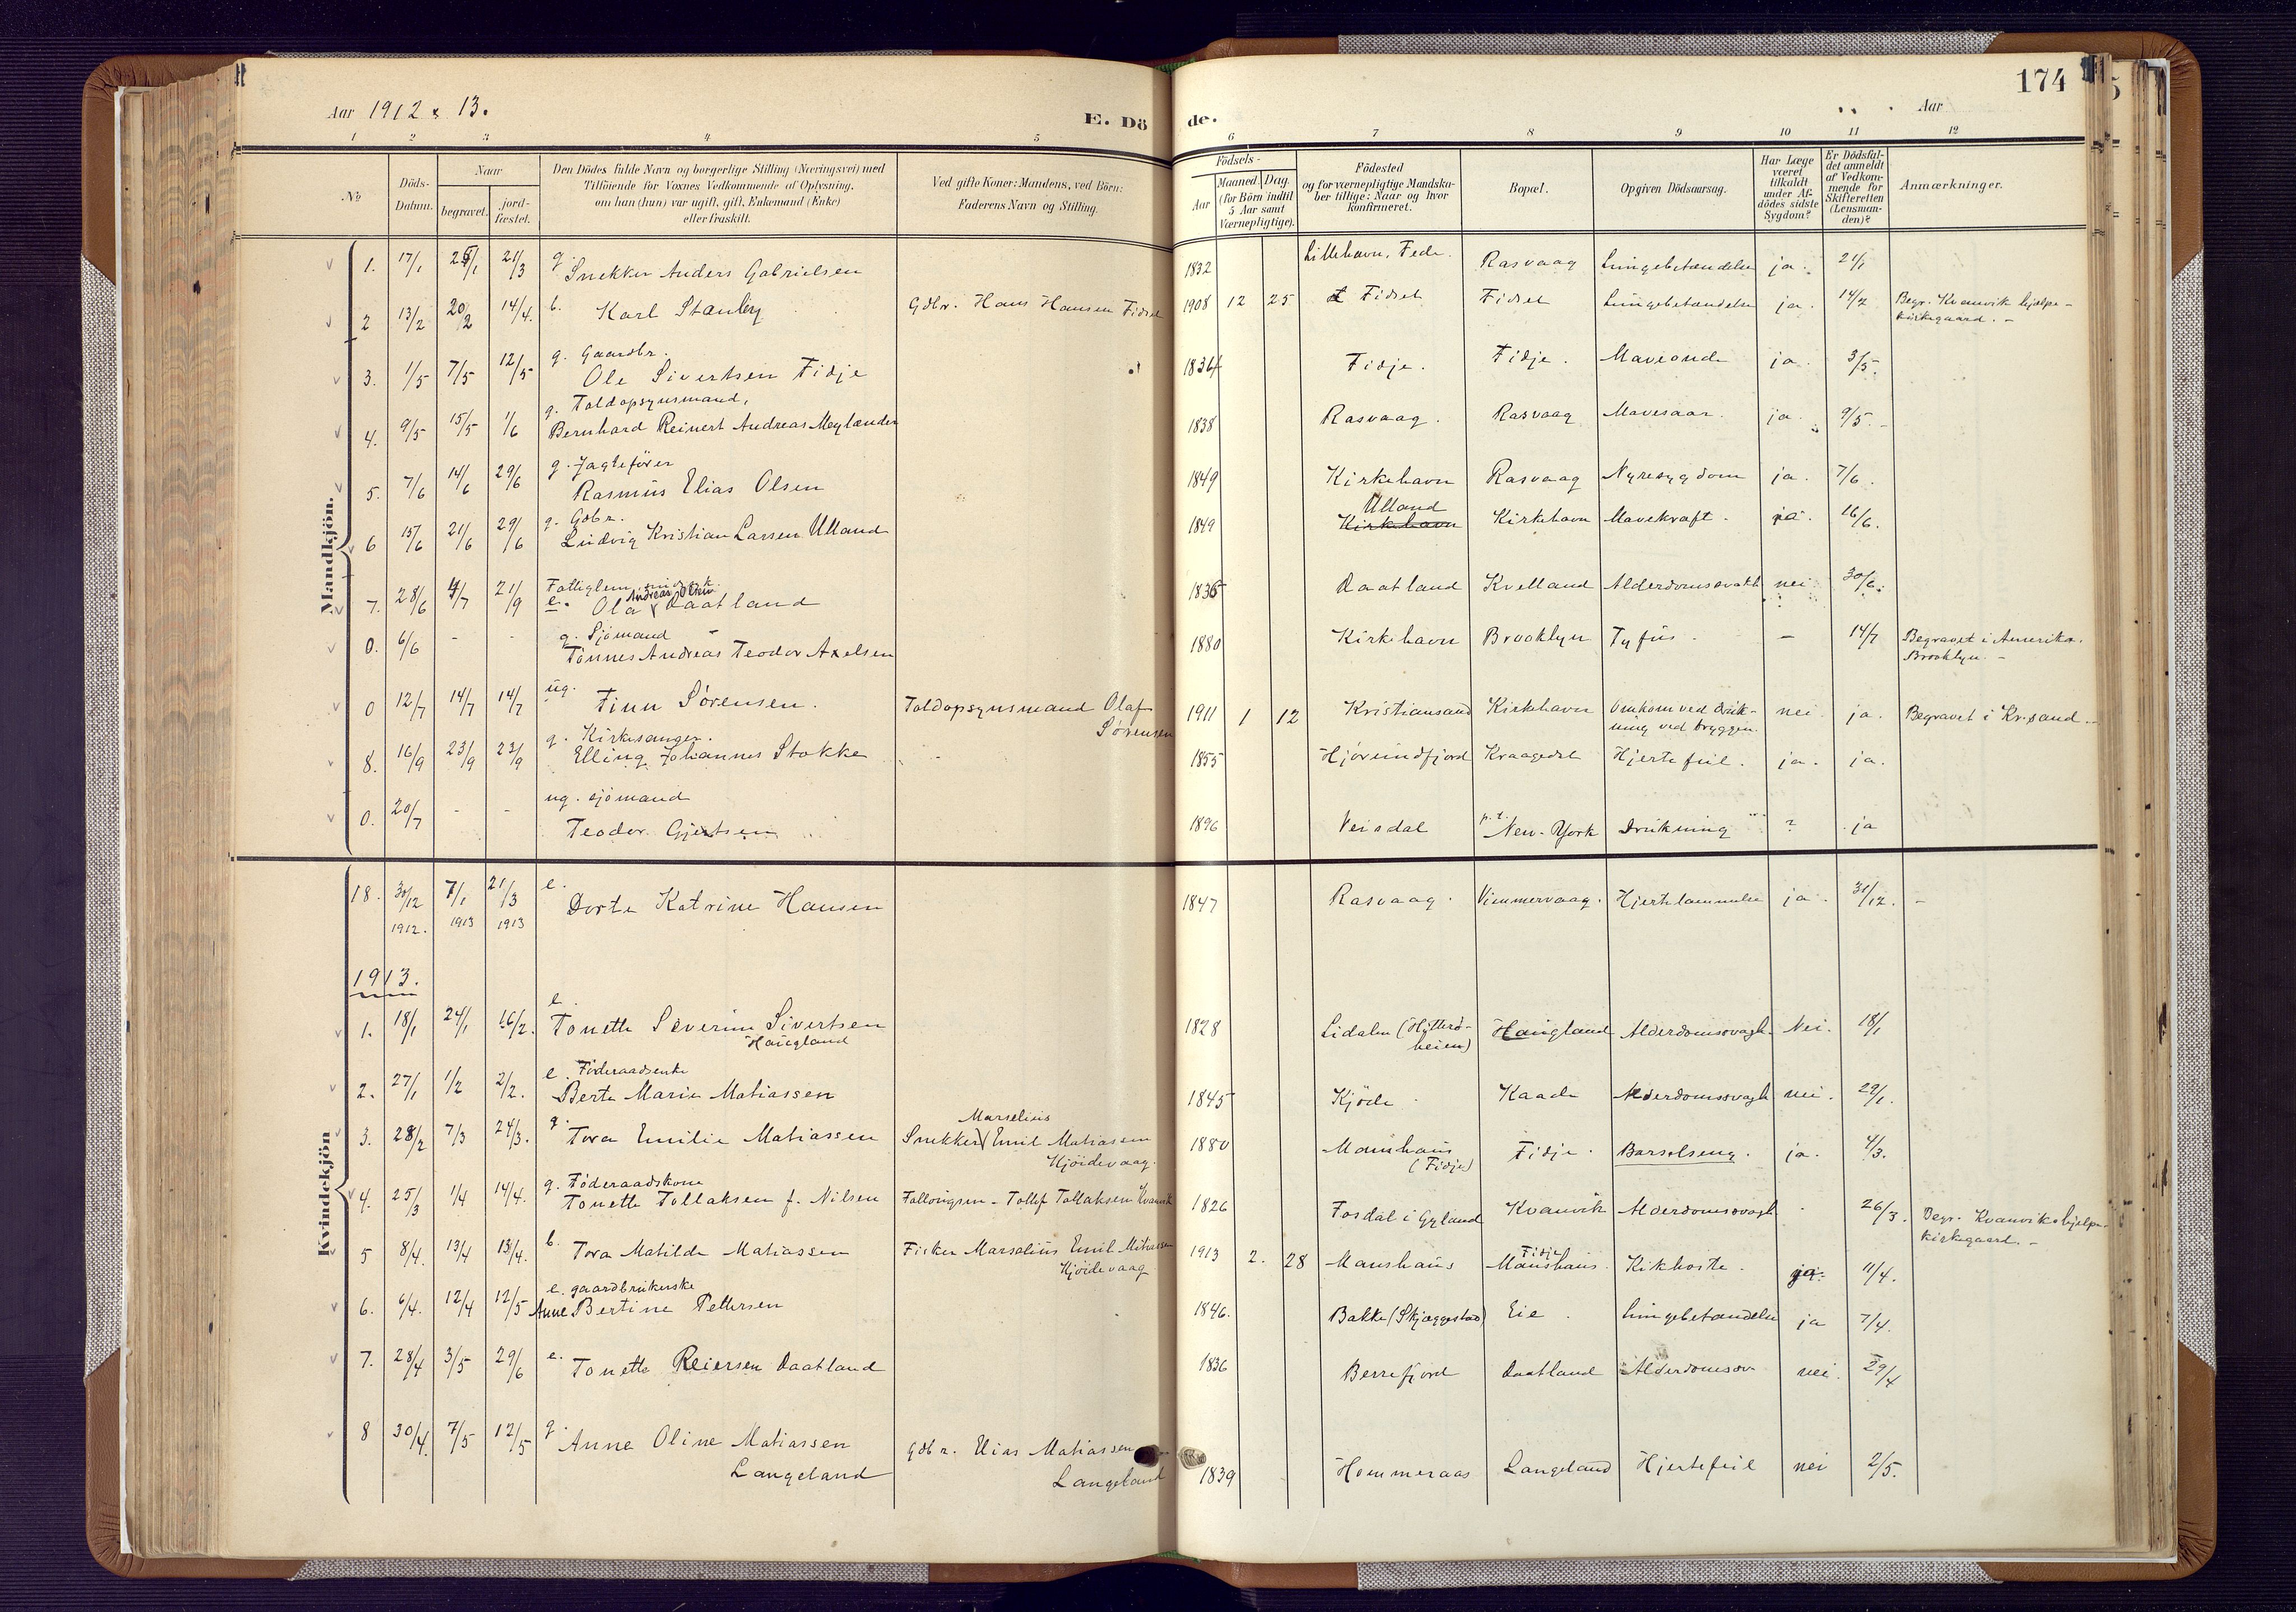 174
Aar 1912 & 13.
E. Dö de.
Aar
1 2 3 4 5 6 7 8 9 10 11 12
No
Döds-Datum.
Naar
begravet.
jord-fæstet.
Den Dödes fulde Navn og borgerlige Stilling (Næringsvei) med
Tilföiende for Voxnes Vedkommende af Oplysning,
om han (hun) var ugift, gift, Enkemand (Enke)
eller fraskilt.
Ved gifte Koner: Mandens, ved Börn:
Faderens Navn og Stilling.
Födsels-
Aar
Maaned. Dag.
(for Börn indtil
5 Aar samt
Værnepligtige).
Födested
og for værnepligtige Mandska-
ber tillige: Naar og hvor
konfirmeret.
Bopæl.
Opgiven Dödsaarsag.
Har Læge
været
tilkaldt
under Af-
dödes sidste
Sygdom?
Er Dödsfal-
det anmeldt
af Vedkom-
mende for
Skifteretten
(Lensman-
den)?
Anmærkninger.
Mandkjön.
1. 17/1 21/3 g. Snekker Anders Gabrielsen 1832 Lillehavn, Fede. Rasvaag Lungebetændelse ja. 21/1
2 13/2 20/2 14/4. b. Karl Stanley Gdbr. Hans Hansen Fidsel 1908 12 25 Fidsel Fidsel Lungebetændelse ja. 14/2 Begr. Kvanvik hjelpe-
kirkegaard. -
3. 1/5 7/5 12/5 g. Gaardbr.
Ole Sivertsen Fidje 1834 Fidje. Fidje. Maveonde ja. 3/5.
4. 9/5 15/5 1/6 g. Toldopsynsmand,
Bernhard Reinert Andreas Meylænder 1838 Rasvaag. Rasvaag Mavesaar. ja. 9/5.-
5. 7/6 14/6 29/6 g. Jagtefører
Rasmus Elias Olsen 1849 Kirkehavn Rasvaag Nyresygdom ja. 7/6.
6 15/6 21/6 29/6 g. Gdbr.
Ludvig Kristian Larsen Ulland 1849 Ulland
Kirkehavn Kirkehavn Mavekræft. ja. 16/6.
7. 28/6 4/7 21/9 Fattiglem
e. Ola Andreas Olsen Daatland 1835 Daatland Kvelland Alderdomssvakh nei 30/6.
0. 6/6 - - g. Sjømand
Tønnes Andreas Teodor Axelsen 1880 Kirkehavn Brooklyn Tyfus. - 14/7 Begravet i Amerika.
Brooklyn. -
0 12/7 14/7 14/7 ug. Finn Sørensen. Toldopsynsmand Olaf
Sørensen 1911 1 12 Kristiansand Kirkehavn Omkom ved Druk-
ning ved bryggen. nei ja. Begravet i Kr.sand. -
8. 16/9 23/9 23/9 g. Kirkesanger.
Elling Johannes Stokke 1855 Hjørundfjord Kraagedal Hjertefeil. ja. ja.
0. 20/7 - - ug. sjømand
Teodor Gjertsen 1896 Veisdal p.t. New-York Drukning ? ja
Kvindekjön
18. 30/12 1912. 7/1 1913 21/3 1913 e. Dorte Katrine Hansen 1847 Rasvaag. Viemmervaag. Hjertelammelse ja. 31/12. -
1913.
1. 18/1 24/1 16/2. e. Tonette Severine Sivertsen
Haugland 1828 Lidalen (Hitterø-
heien) Haugland Alderdomssvagh. Nei. 18/1
2. 27/1 1/2 2/2. e. Føderaadsenke
Berte Marie Matiassen 1845 Kjøde Kaade Alderdomssvagh nei. 29/1.
3. 28/2 7/3 24/3. g. Tora Emilie Matiassen Snekker Marselius Emil Matiassen
Kjøidevaag. 1880 Maushaus
(Fidje) Fidje. Barselseng. ja. 4/3.
4. 25/3 1/4 14/4. g. Føderaadskone
Tonette Tollaksen f. Nilsen Tollef Tollaksen Kvanvik 1826 Fosdal i Gyland Kvanvik Alderdomssvagh 26/3. Begr. Kvanvik hjelpe-
kirkegaard. -
5 8/4. 13/4 13/4. b. Tora Matilde Matiassen Fisker Marselius Emil Matiassen
Kjøidevaag 1913 2. 28 Maushaus Fidje
Maushaus. Kikhoste. ja. 11/4.
6. 6/4. 12/4 12/5 e. gaardbrukerske
Anne Bertine Pettersen 1846. Bakke (Skjeggestad) Eie. Lungebetændelse ja 7/4.
7. 28/4 3/5 29/6 e. Tonette Reiersen Daatland 1836 Berrefjord Daatland Alderdomssv nei. 29/4
8 30/4. 7/5 12/5 g. Anne Oline Matiassen
Langeland Gdbr. Elias Matiassen
Langeland 1839 Hommeraas Langeland Hjertefeil nei 2/5.